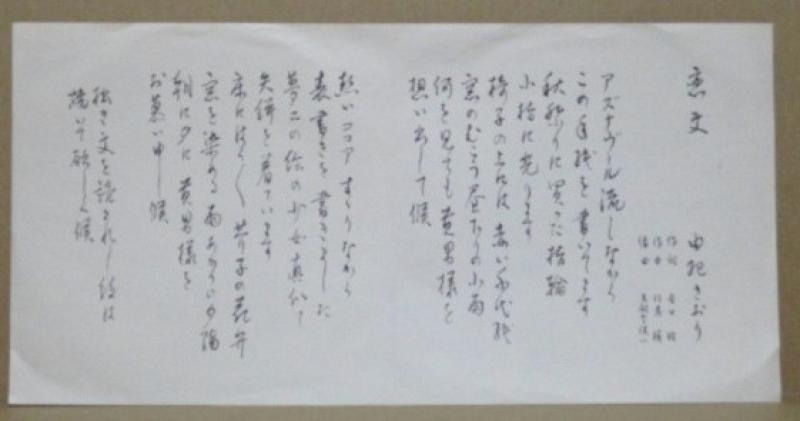 恋文
由紀さおり
作詞 吉田 旺
作曲 佐藤 勝
編曲
アズナヴール流しながら
この手紙を書いてます
秋祭りに買った指輪
小指に光ります
椅子の上には 赤い千代紙
窓のむこう昼下りの小雨
何を見ても貴男様を
想い出して候
熱いココア すすりながら
表書きを書きました
夢二の絵の少女真似て
矢絣を着ています
床にはら〱 芥子の花弁
窓を染める雨あがりの夕陽
朝に夕に貴男様を
お慕い申し候
拙き文を読まれし後は
焼いて欲しく候